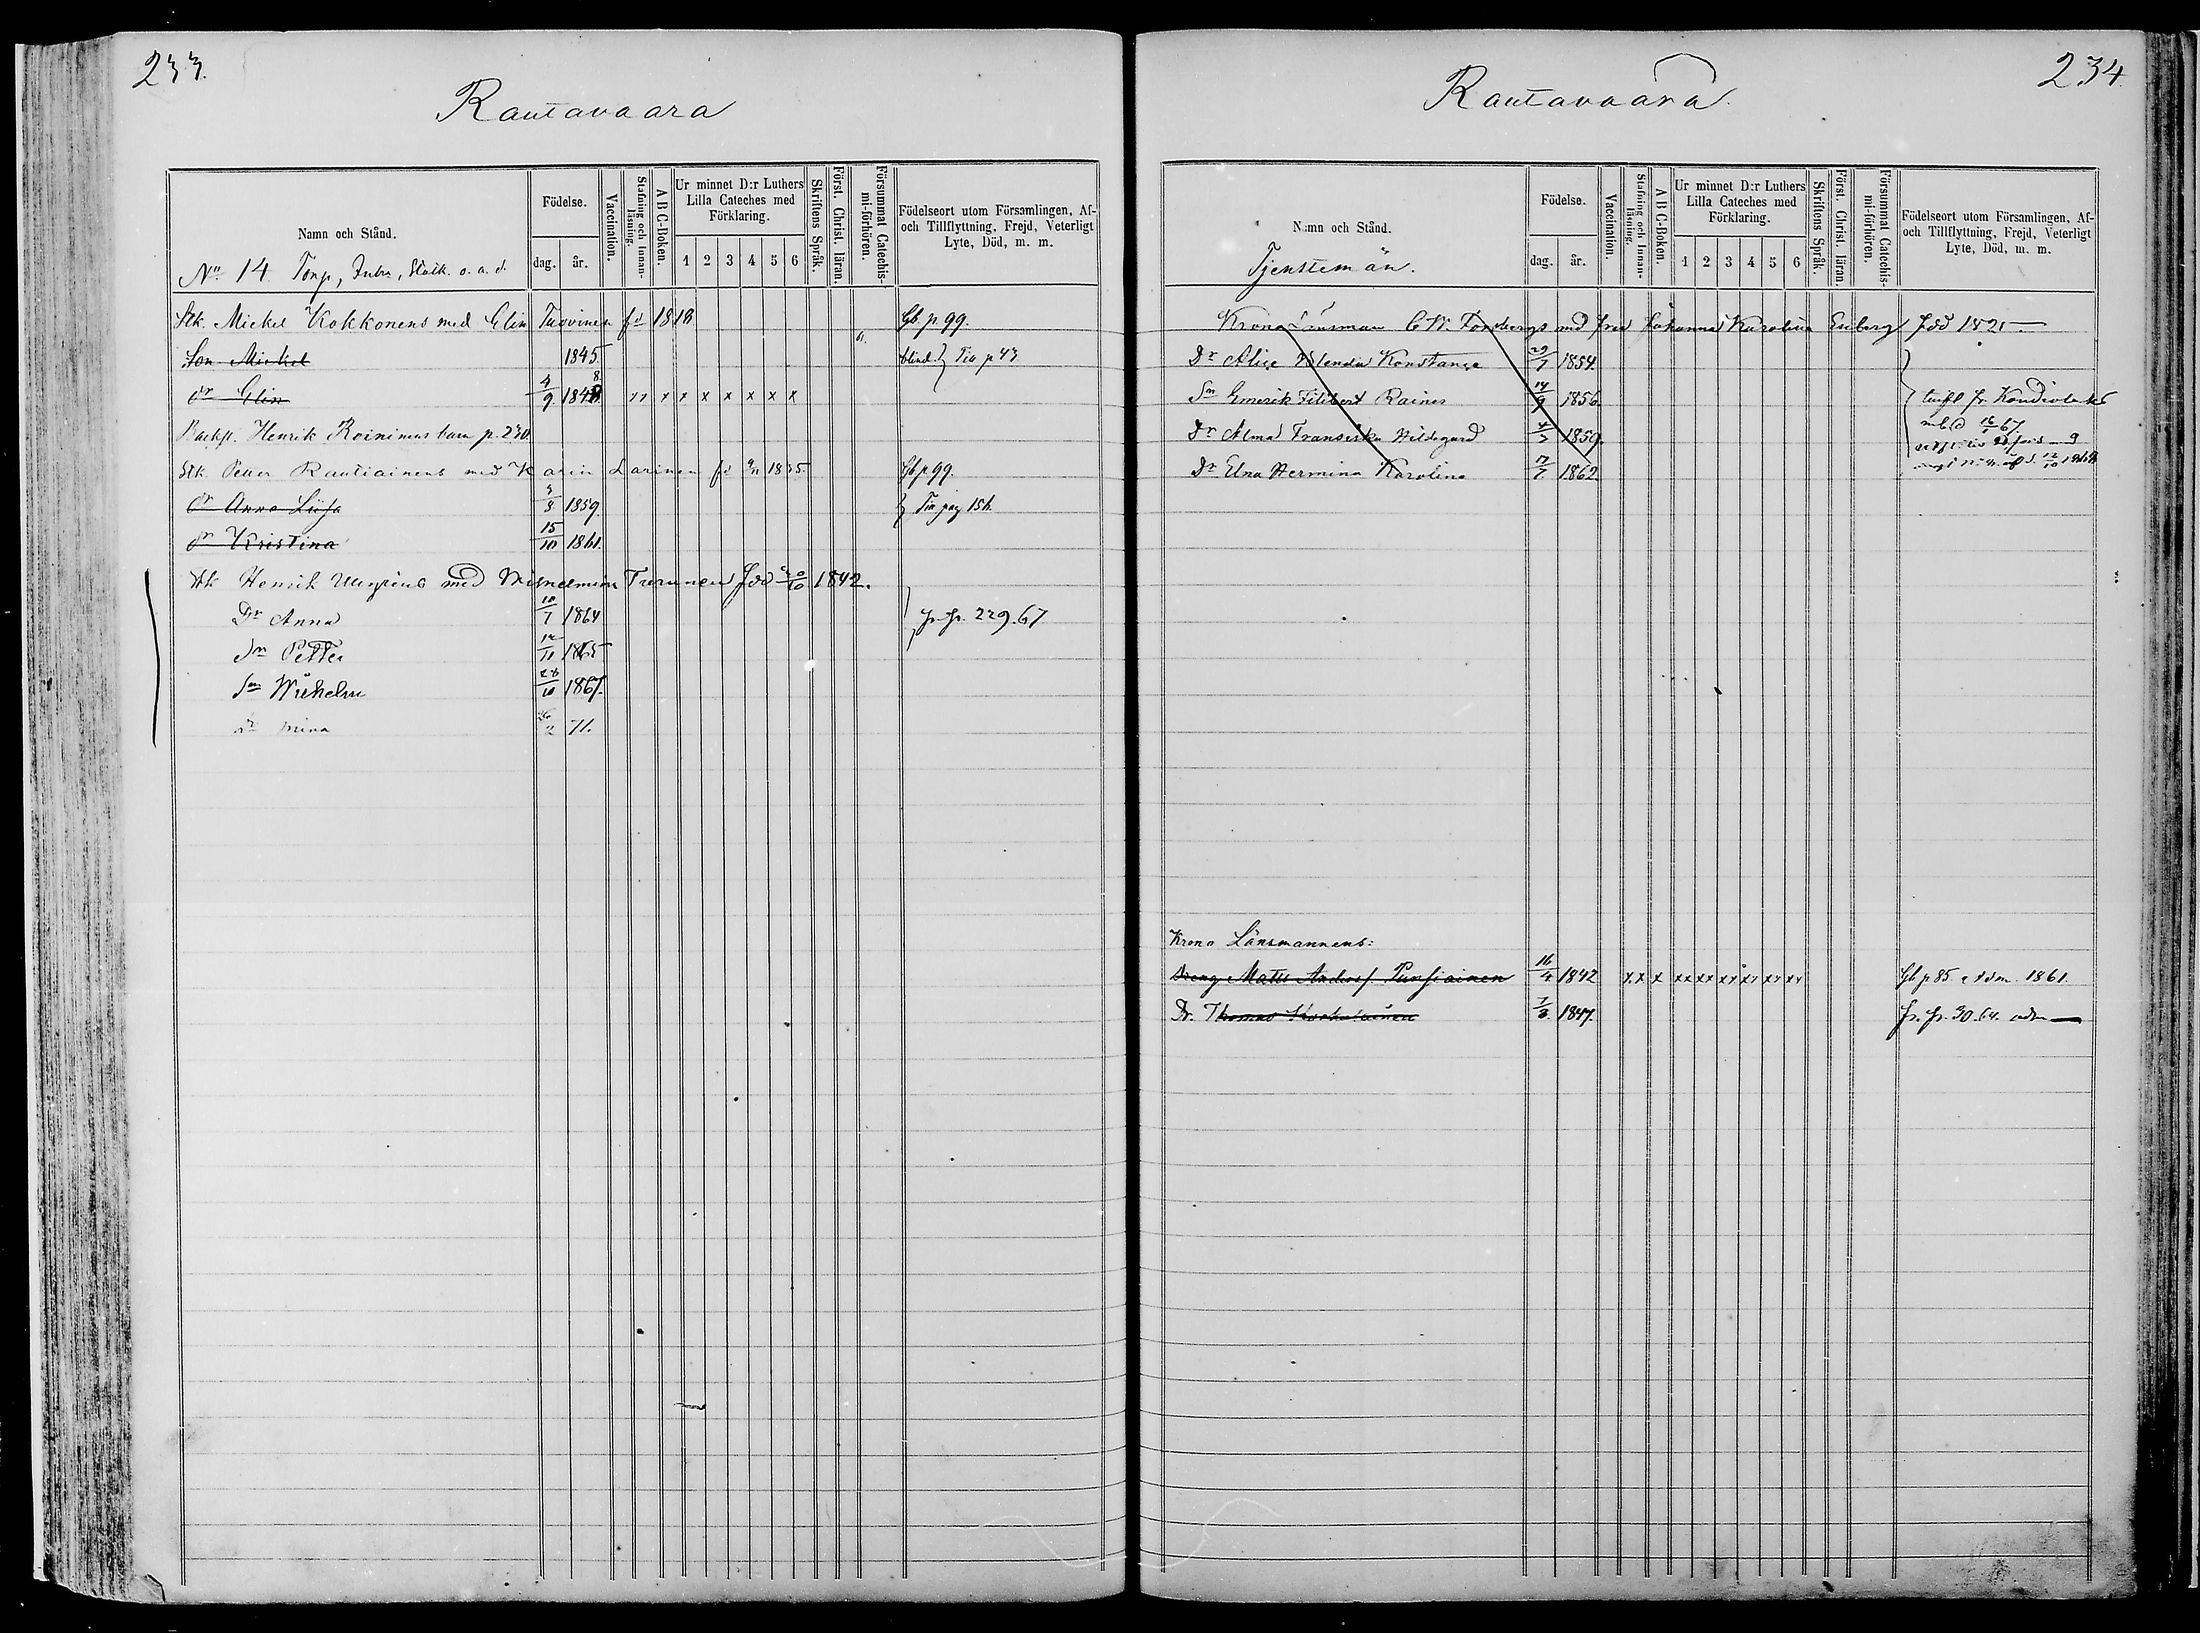 233.
Rautavaara
Namn och Stånd.
Födelse.
dag.
år.
Vaccination.
Stafning och Innan-läsning.
A B C-Boken.
Ur minnet D:r Luthers Lilla Cateches med Förklaring.
1 2 3 4 5 6
Skriftens Språk.
Först. Christ. läran.
Försummat Catechis-mi-förhören.
Födelseort utom Församlingen, Af-
och Tillflyttning, Frejd, Veterligt
Lyte, Död, m. m.
No 14 Torp, Inhs, Statk. o. a. d.
Stk. Mickel Kokkonens med Elin Tuovinen fd 1818 Gb p 99.
Son Mickel 1845 blind. Tia p 43
dr Elin 4/9 1848 x x x x x x x
Backst. Henrik Roininens barn p. 230
Stk Petter Rautiainens med Karin Larinen fd 1835 Gb p 99.
dr Anna Liisa 8 1859. Tia pag 154.
dr Kristina 15/10 1861.
Stk Henrik med Wilhelmina Turunen född 20/10 1842.
Dr Anna 10/7 1864 fr. fr. 229.67
Sn Petter 12/11 1865
Sn Wilhelm 28/10 1867.
dr Mina 2 71.
234.
Rautavaara.
Namn och Stånd.
Födelse.
dag.
år.
Vaccination.
Stafning och Innan-läsning.
A B C-Boken.
Ur minnet D:r Luthers Lilla Cateches med Förklaring.
1 2 3 4 5 6
Skriftens Språk.
Först. Christ. läran.
Försummat Catechis-mi-förhören.
Födelseort utom Församlingen, Af-
och Tillflyttning, Frejd, Veterligt
Lyte, Död, m. m.
Tjenstemän.
Krono Länsman C. W. Forsbergs med fru Johanna Karolina Enberg född 1821
Dr Alice Konstange 29/7 1854.
Sn Emerik Filibert Rainer 14/9 1856 fr. Kondiolaks
Dr Alma Fransiska Hildegard 4/7 1859.
Dr Elna Hermina Karolina 17/7 1862 12/10 1868
Krono Länsmannens:
Dreng Mats Andersf. Pursiainen 16/4 1842 x x x xx xx xx xx xx xx Gb p 85 adm. 1861.
Dr. Thomas 7/3. 1847. fr. fr. 30.64. adm